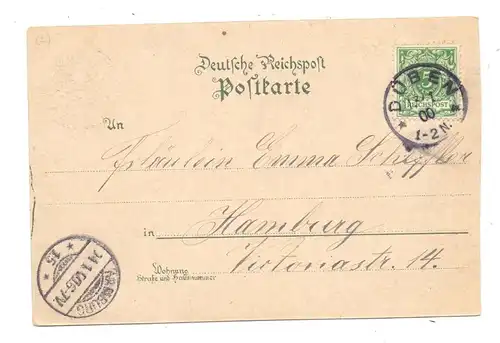 Deutsche Reichspost
Postkarte
DÜBEN
00
1-2 N.
REICHSPOST
An
Fräulein Emma
in Hamburg
Wohnung
Straße und Hausnummer
Victoriastr. 14.
HAMBURG
* 15 *